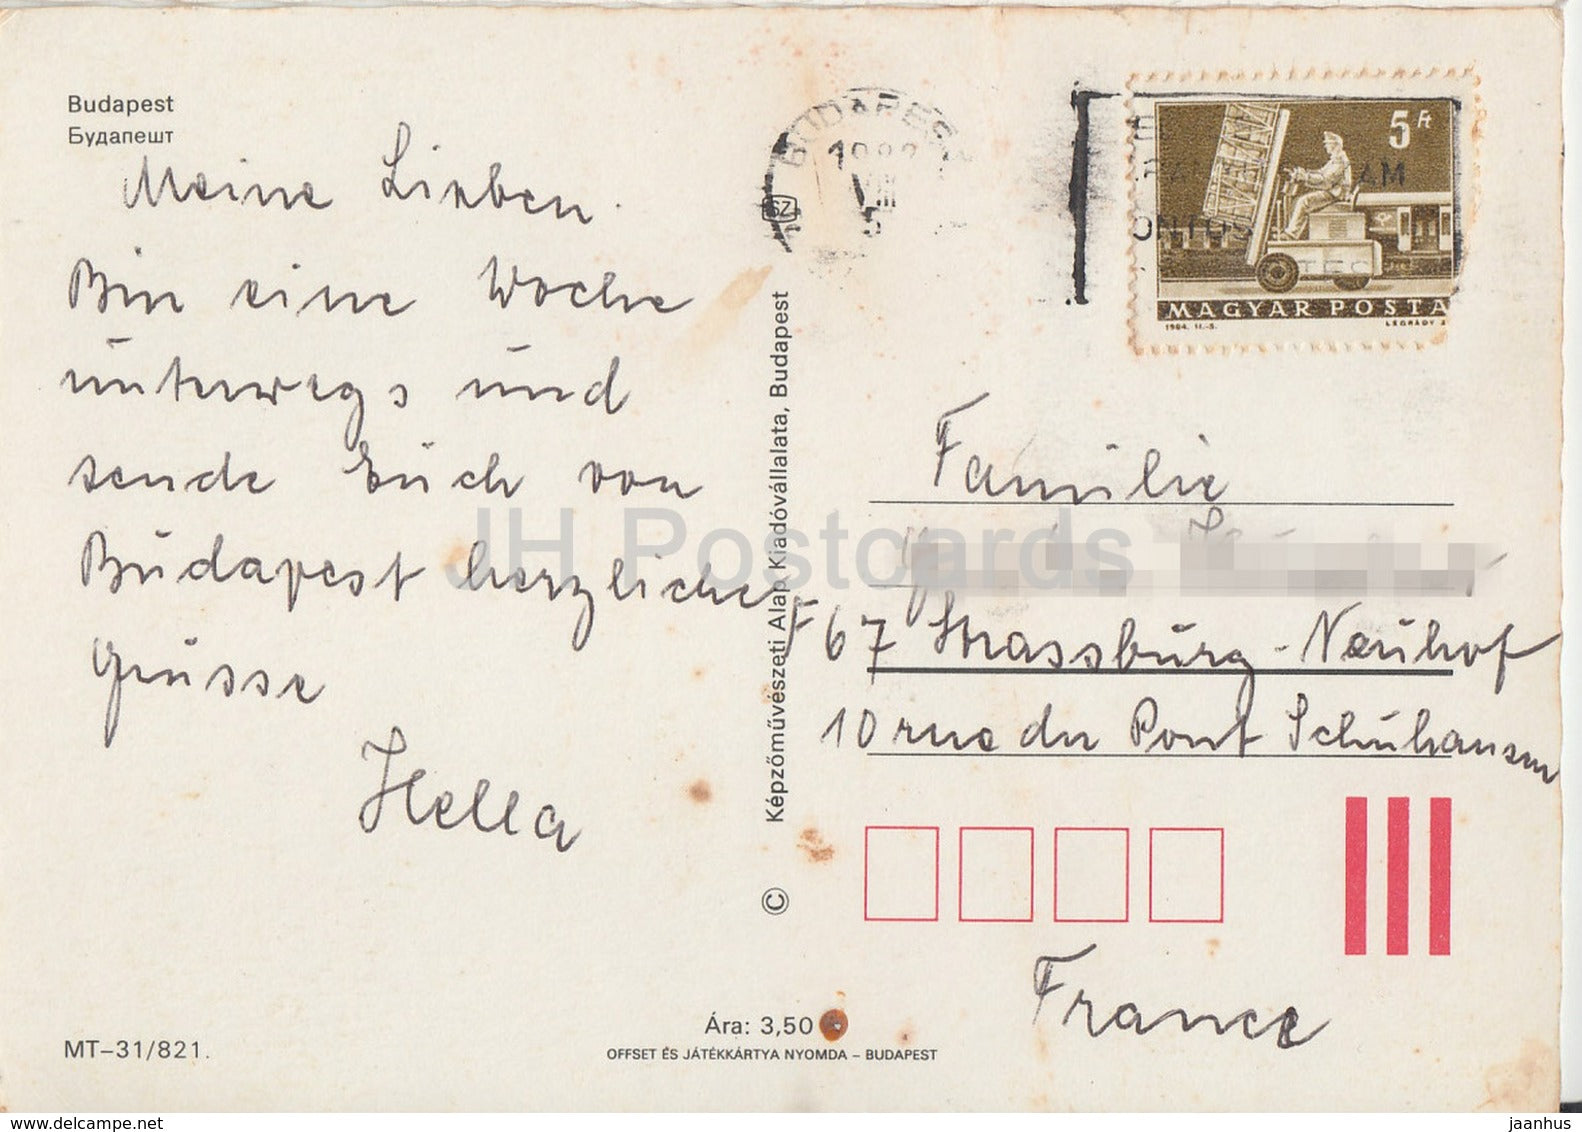 Budapest
Будапешт
Meine Lieben.
Bin eine Woche
unterwegs und
sende Euch von
Budapest herzliche
Grüsse
Hella
MT-31/821.
Ára: 3,50
OFFSET ÉS JÁTÉKKÁRTYA NYOMDA – BUDAPEST
© Képzőművészeti Alap Kiadóvállalata, Budapest
BUDAPEST
VIII
5 Ft
MAGYAR POSTA
1964. II.-5.
LÉGRÁDY
Familie
F 67 Strassburg-Neuhof
10 rue du Pont Schuhansen
France
JH Postcards
delcampe.net
jaanhus